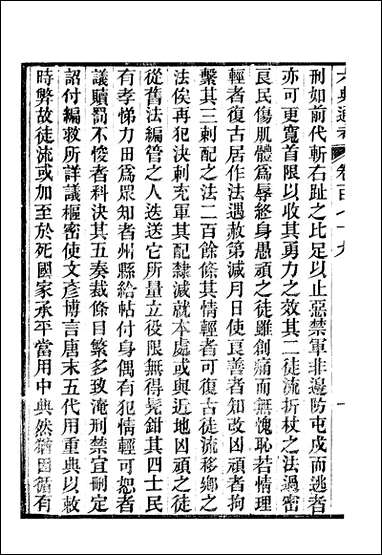 六典通考 卷百七十九 一
刑如前代斬右趾之比足以止惡禁軍非邊防屯戍而逃者
亦可更寬首限以收其勇力之效其二徒流折杖之法過密
良民傷肌體爲辱終身愚頑之徒雖創痛而無愧恥若情理
輕者復古居作法遇赦第減月日使良善者知改凶頑者拘
繫其三刺配之法二百餘條其情輕者可復古徒流移鄉之
法俟再犯決刺充軍其配隸減就本處或與近地凶頑之徒
從舊法編管之人迭送它所量立役限無得髠鉗其四士民
有孝悌力田爲眾知者州縣給帖付身偶有犯情輕可恕者
議贖罰不悛者科決其五奏裁條目繁多致淹刑禁宜刪定
詔付編敕所詳議樞密使文彥博言唐末五代用重典以救
時弊故徒流或加至於死國家承平當用中典然猶因循有